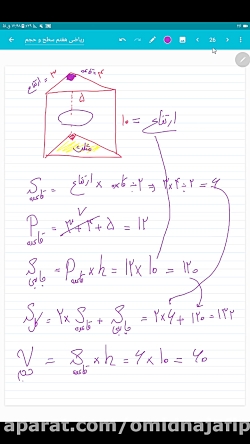 ریاضی هفتم سطح و حجم
26
ارتفاع = ۳
قاعده = ۴
۵
ارتفاع = ۱۰
مثلث
S قاعده = ارتفاع × قاعده ÷ ۲ = ۳×۴÷۲ = ۶
P قاعده = ۳+۴+۵ = ۱۲
۷
S جانبی = P قاعده × h = ۱۲×۱۰ = ۱۲۰
S کل = ۲× S قاعده + S جانبی = ۲×۶ + ۱۲۰ = ۱۳۲
V حجم = S قاعده × h = ۶×۱۰ = ۶۰
aparat.com/omidnajarip